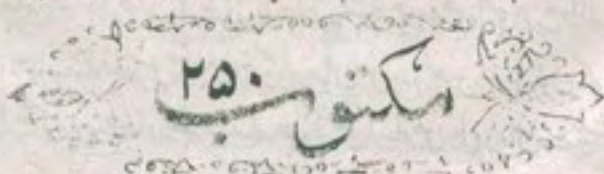 مکتوب ۲۵۰